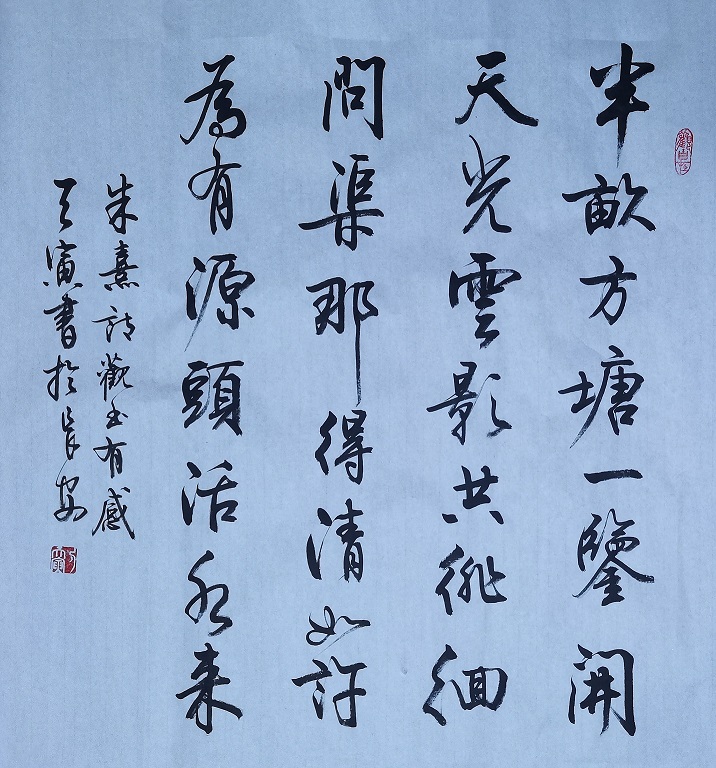 半畝方塘一鑒開
天光雲影共徘徊
問渠那得清如許
為有源頭活水来
朱熹詩觀书有感
壬寅書於長安